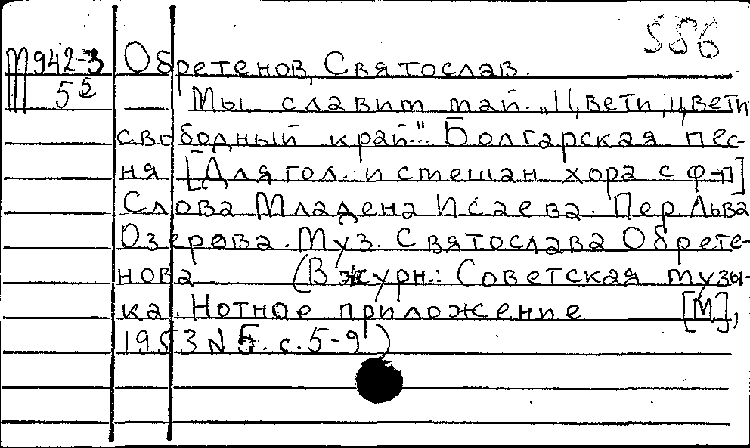 556
М942-3 Обретенов, Святослав.
5⁵ Мы славим май. "Цвети, цвети
свободный край". Болгарская пес-
ня [Для гол. и смешан. хора с ф-п]
Слова Младена Исаева. Пер. Льва
Озерова. Муз. Святослава Обрете-
нова (В журн.: Советская музы-
ка. Нотное приложение [М],
1953 № 5. с. 5-9)